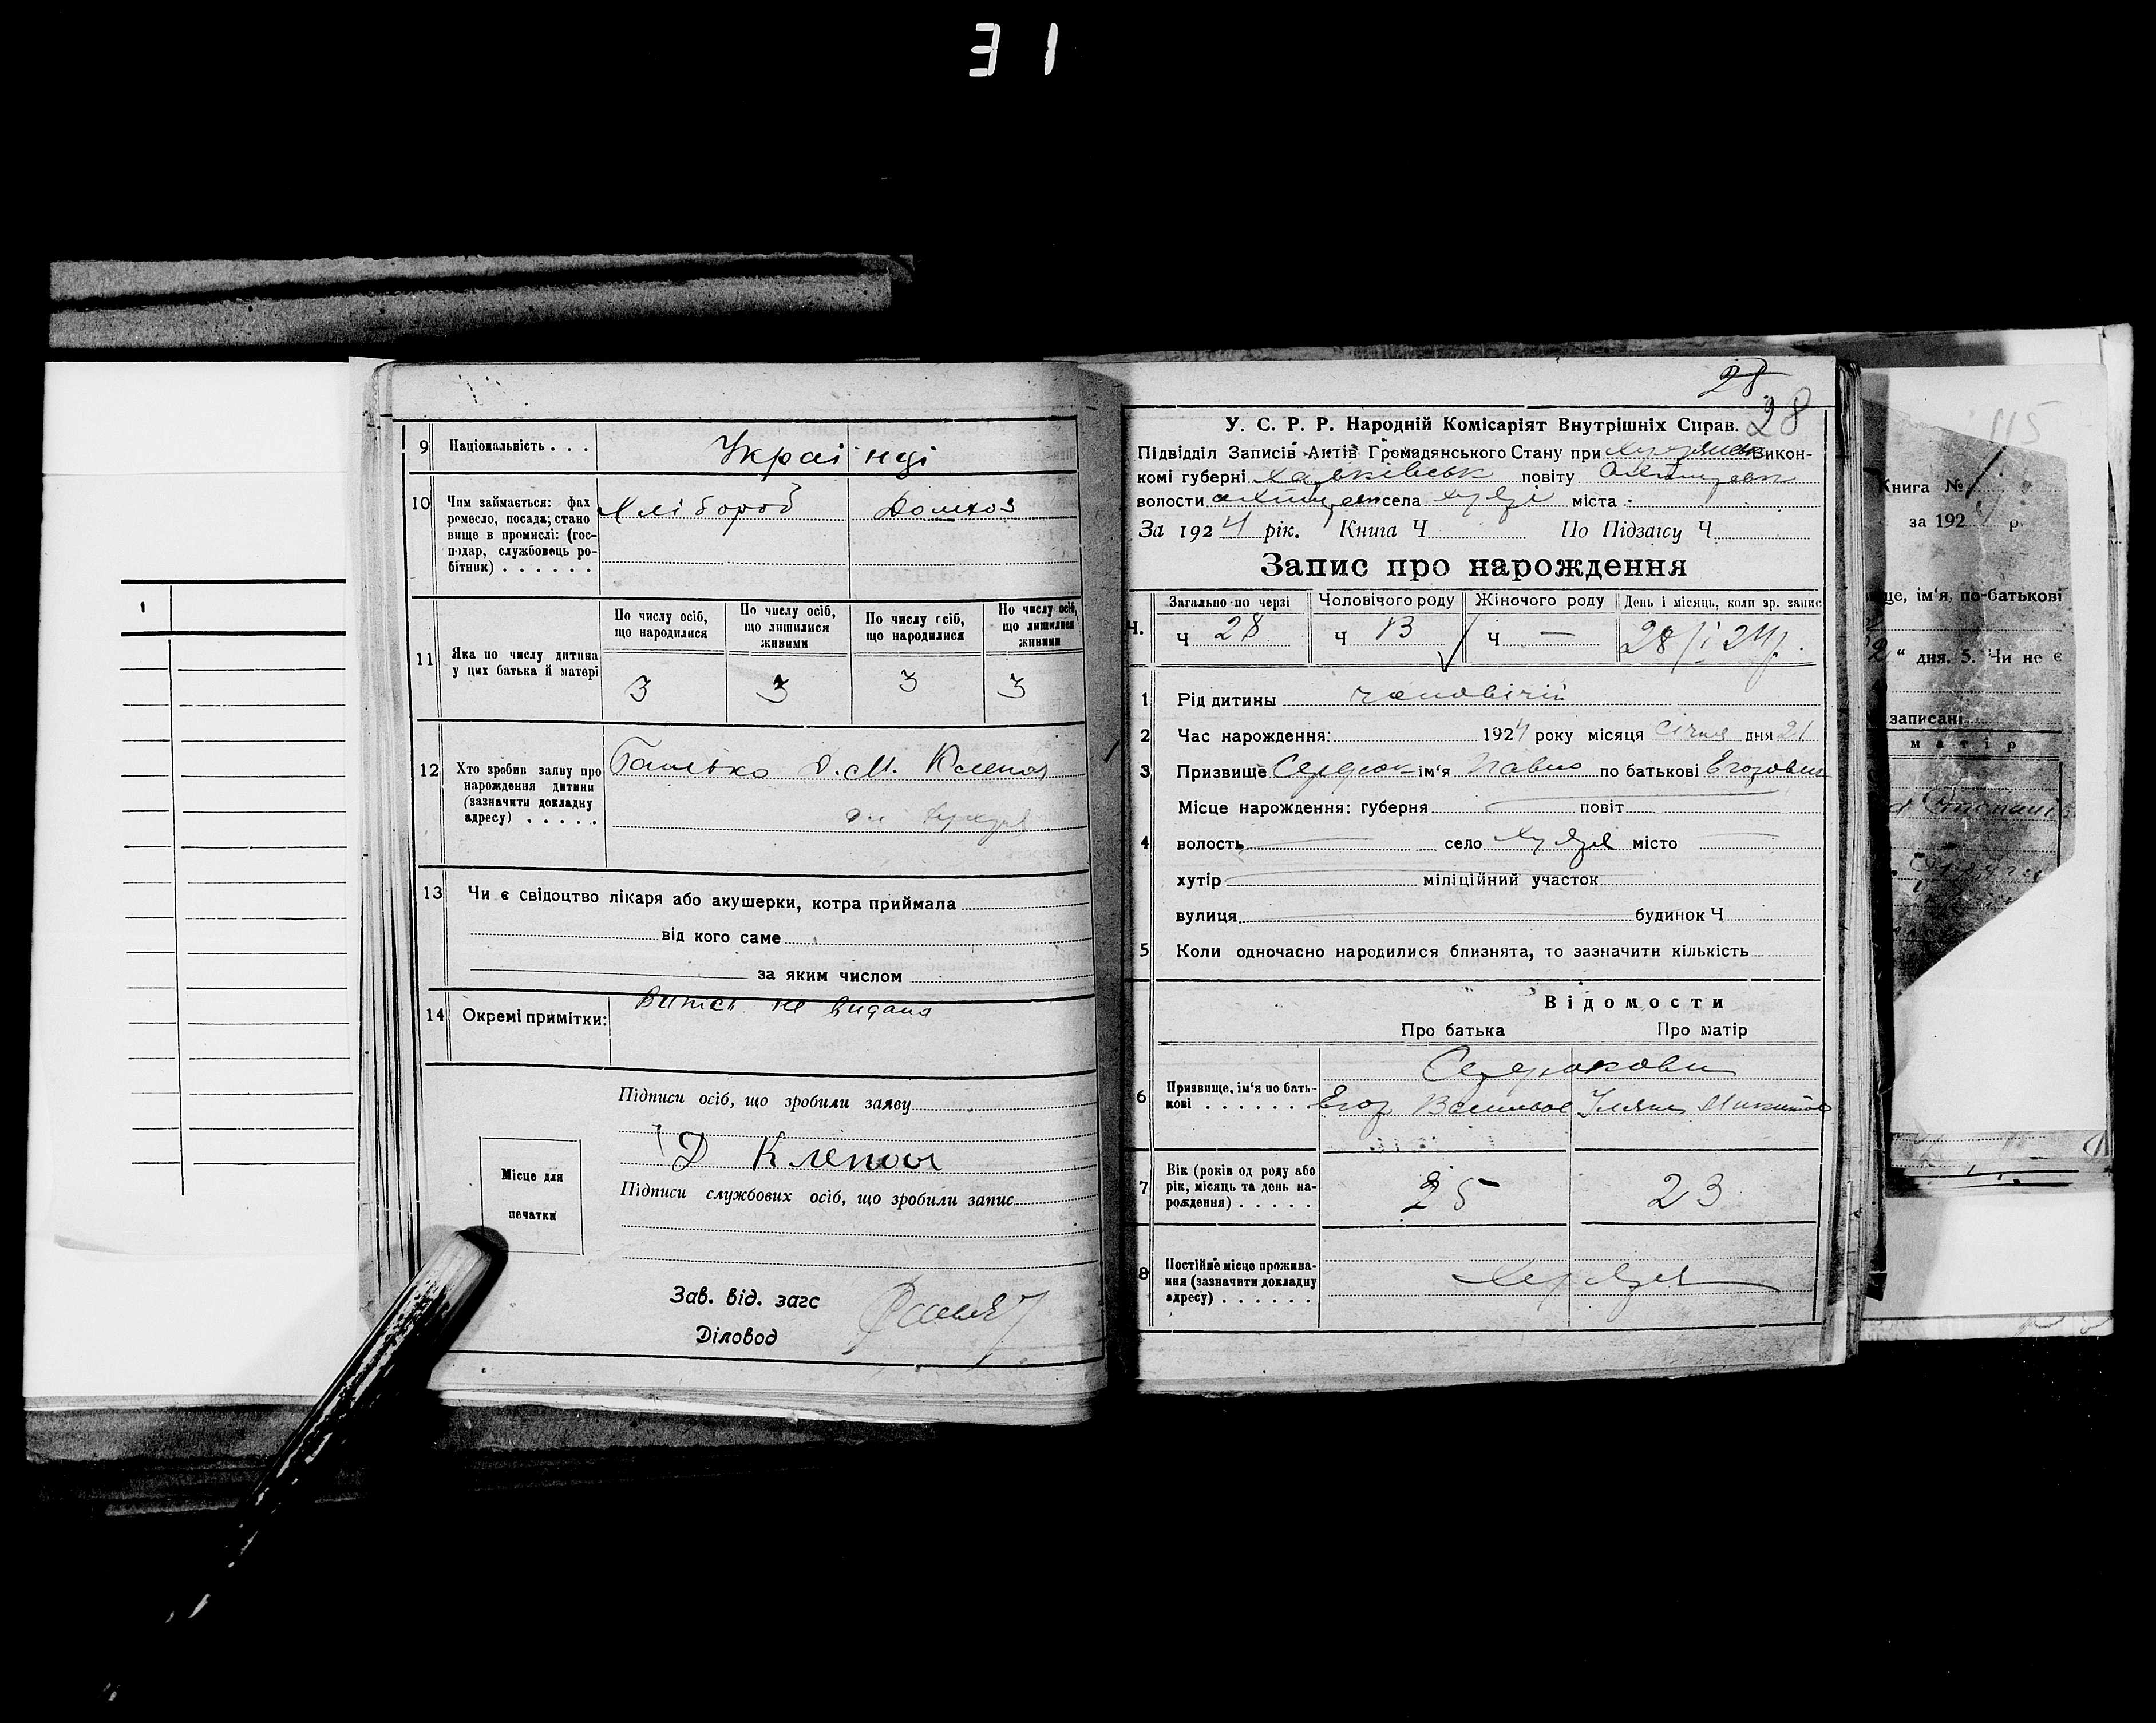 31
9 Національність . . . Украінці
10 Чим займається: фах
ремесло, посада; стано
вище в промислі: (гос-
подар, службовець ро-
бітник) . . . . . .
Хлібороб Домхоз
11 Яка по числу дитина
у цих батька й матері
По числу осіб,
що народилися
По числу осіб,
що лишилися
живими
По числу осіб,
що народилися
По числу осіб,
що лишилися
живими
3 3 3 3
12 Хто зробив заяву про
нарождення дитини
(зазначити докладну
адресу) . . . . .
Батько Д. М.
13 Чи є свідоцтво лікаря або акушерки, котра приймала
від кого саме
за яким числом
14 Окремі примітки: не видана
Підписи осіб, що зробили заяву
Д
Місце для
печатки
Підписи службових осіб, що зробили запис
Зав. від. загс
Діловод
28
28
У. С. Р. Р. Народній Комісаріят Внутрішніх Справ.
Підвідділ Записів Актів Громадянського Стану при Викон-
комі губерні Харківськ повіту
волости села міста -
За 1924 рік. Книга Ч По Підзагсу Ч
Запис про нарождення
Ч.
Загально по черзі Чоловічого роду Жіночого роду День і місяць, коли зр. запис
Ч 28 Ч 13 Ч — 28/I 24 р.
1 Рід дитини чоловічий
2 Час нарождення: 1924 року місяця Січня дня 21
3 Призвище Сердюк ім'я Павло по батькові Егорович
4 Місце нарождення: губерня повіт
волость село місто
хутір міліційний участок
вулиця будинок Ч
5 Коли одночасно народилися близнята, то зазначити кількість
Відомости
Про батька Про матір
6 Призвище, ім'я по бать-
кові . . . . . .
Сердюкови
Егор
7 Вік (років од роду або
рік, місяць та день на-
рождення) . . . . .
25 23
8 Постійне місце прожива-
ння (зазначити докладну
адресу) . . . . . .
1
115
Книга №
за 192 р.
ще, ім'я, по-батькові
" дня. 5. Чи не є
записані
матір